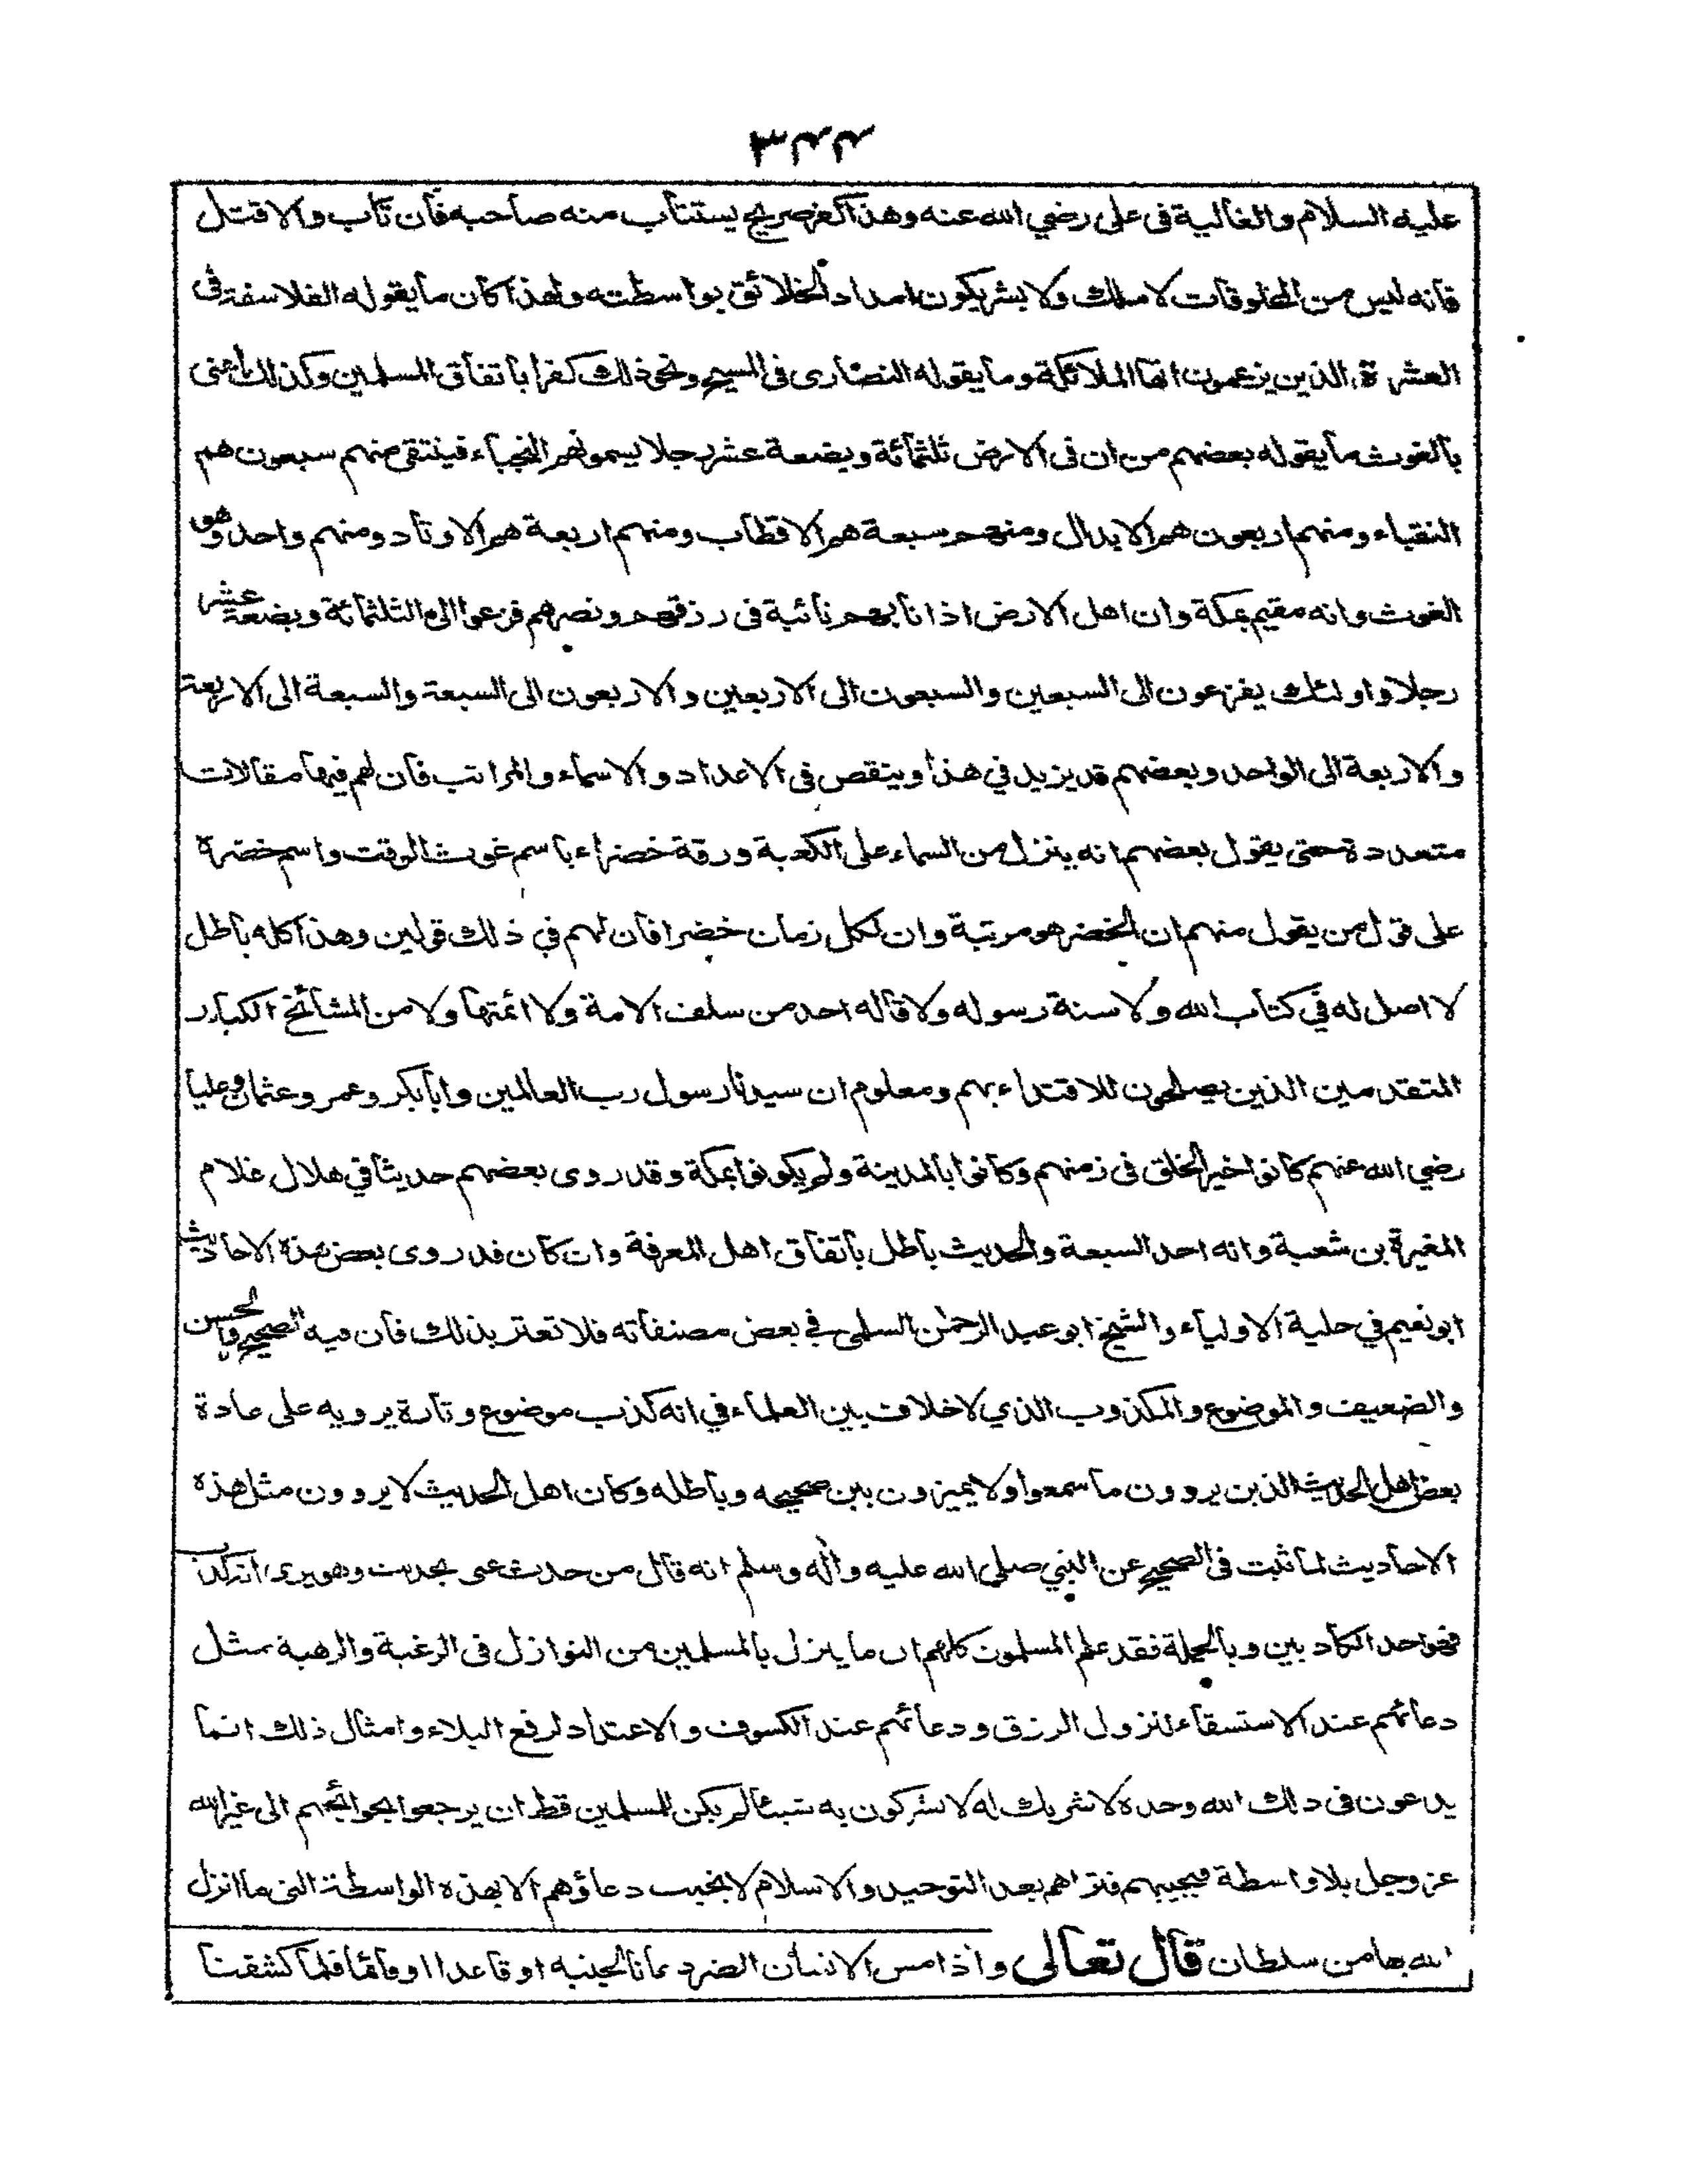 عليه السلام والغالية في علي رضي الله عنه وهذا كفر صريح يستتاب منه صاحبه فان تاب والا قتل
فانه ليس من المخلوقات لا ملك ولا بشر يكون امداد الخلائق بواسطته ولهذا كان ما يقوله الفلاسفة في
العشرة الذين يزعمون انها الملائكة وما يقوله النصارى في المسيح ونحو ذلك كفرا باتفاق المسلمين وكذلك أعنى
بالغوث ما يقوله بعضهم من ان في الارض ثلثمائة وبضعة عشر رجلا يسمونهم النجباء فينتقى منهم سبعون هم
النقباء ومنهم اربعون هم الابدال ومنهم سبعة هم الاقطاب ومنهم اربعة هم الاوتاد ومنهم واحد وهو
الغوث وانه مقيم بمكة وان اهل الارض اذا نابهم نائبة في رزقهم ونصرهم فزعوا الى الثلثمائة وبضعة عشر
رجلا واولئك يفزعون الى السبعين والسبعون الى الاربعين والاربعون الى السبعة والسبعة الى الاربعة
والاربعة الى الواحد وبعضهم قد يزيد في هذا وينقص في الاعداد والاسماء والمراتب فان لهم فيها مقالات
متعددة حتى يقول بعضهم انه ينزل من السماء على الكعبة ورقة خضراء باسم غوث الوقت واسم خضرة
على قول من يقول منهم ان الخضر هو مرتبة وان لكل زمان خضرا فان لهم في ذلك قولين وهذا كله باطل
لا اصل له في كتاب الله ولا سنة رسوله ولا قاله احد من سلف الامة ولا ائمتها ولا من المشائخ الكبار
المتقدمين الذين يصلحون للاقتداء بهم ومعلوم ان سيدنا رسول رب العالمين وابابكر وعمر وعثمان وعليا
رضي الله عنهم كانوا خير الخلق في زمنهم وكانوا بالمدينة ولم يكونوا بمكة وقد روى بعضهم حديثا في هلال غلام
المغيرة بن شعبة وانه احد السبعة والحديث باطل باتفاق اهل المعرفة وان كان قد روى بعض هذه الاحاديث
ابو نعيم في حلية الاولياء والشيخ ابو عبد الرحمن السلمي في بعض مصنفاته فلا تغتر بذلك فان فيه الصحيح والحسن
والضعيف والموضوع والمكذوب الذي لا خلاف بين العلماء في انه كذب موضوع وتارة يرويه على عادة
بعض اهل الحديث الذين يروون ما سمعوا ولا يميزون بين صحيحه وباطله وكان اهل الحديث لا يروون مثل هذه
الاحاديث لما ثبت في الصحيح عن النبي صلى الله عليه وآله وسلم انه قال من حدث عني بحديث وهو يرى انه كذب
فهو احد الكاذبين وبالجملة فقد علم المسلمون كلهم ان ما ينزل بالمسلمين من النوازل في الرغبة والرهبة مثل
دعائهم عند الاستسقاء لنزول الرزق ودعائهم عند الكسوف والاعتداد لرفع البلاء وامثال ذلك انما
يدعون في ذلك الله وحده لا شريك له لا يشركون به شيئا لم يكن للمسلمين قط ان يرجعوا بحوائجهم الى غير الله
عز وجل بلا واسطة فيجيبهم فتراهم بعد التوحيد والاسلام لا يجيب دعاؤهم الا بهذه الواسطة التي ما انزل
الله بها من سلطان قال تعالى واذا مس الانسان الضر دعانا لجنبه او قاعدا او قائما فلما كشفنا